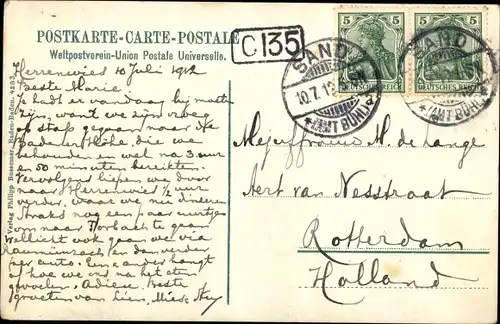 POSTKARTE-CARTE-POSTALE
Weltpostverein-Union Postale Universelle.
C 135
5 5
5 5
DEUTSCHES REICH
DEUTSCHES REICH
SAND
10.7.12
*(AMT BÜHL)*
SAND
*(AMT BÜHL)
Herrenwies 10 Juli 1912
Beste Marie!
Je hadt er vandaag bij moeten
zijn, want we zijn vroeg
op stap gegaan naar de
Badener Höhe, die we
behouden en wel na 3 uur
en 50 minuten bereikten.
Vervolgens liepen we door
naar Herrenwies ½ uur
verder, waar we nu dineeren.
Straks nog een paar uurtjes
om naar Forbach te gaan
Wellicht ook gaan we via
en dan verder
per auto. Een ander hangt
af hoe we ons na het eten
gevoelen. Adieu. Beste
groeten van Lien,
Mejuffrouw M. de Lange
Aert van Nesstraat
Rotterdam
Holland
Verlag Philipp Bussemer, Baden-Baden. 4283.